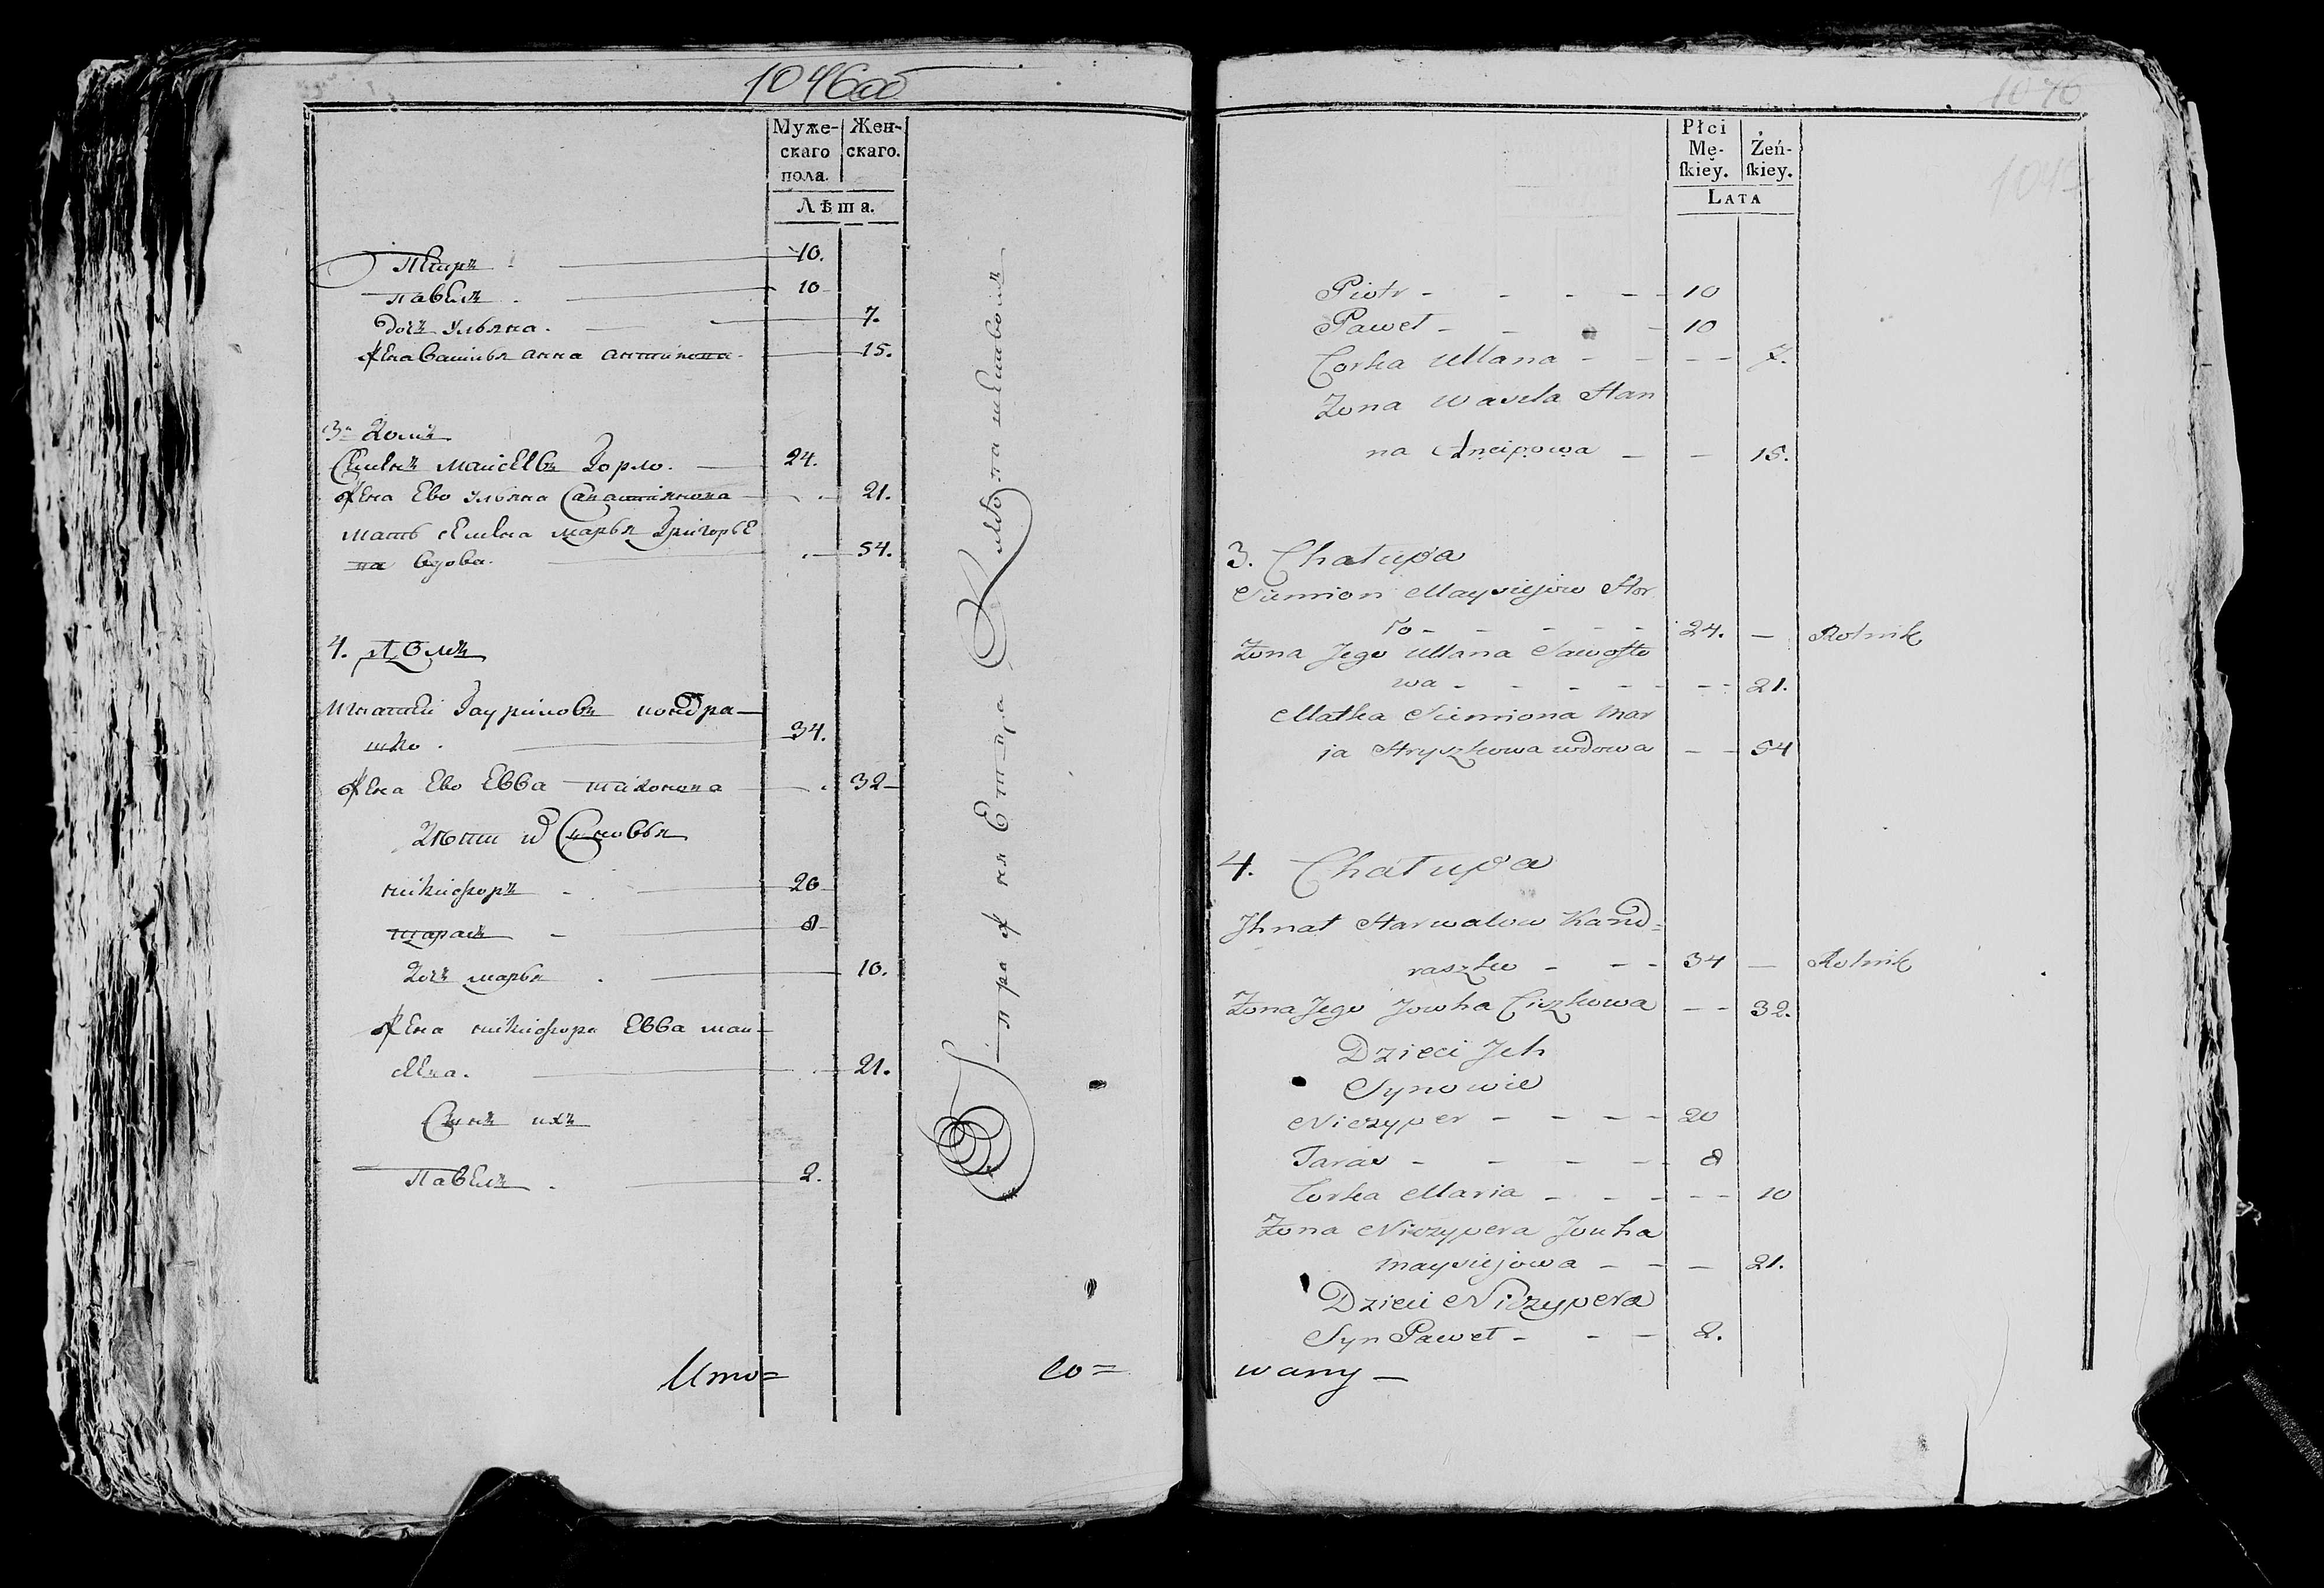 1046об
Муже-
скаго
пола.
Жен-
скаго.
Лѣта.
Петръ 10.
Павелъ 10
Дочъ Ульяна. 7.
Жена Василья Анна Антипова 15.
3. Домъ
Семенъ Майсеевъ Горло. 24.
Жена Ево Ульяна 21.
Мать Семена Марья Григорье
ва вдова. 54.
4. Домъ
Игнатей Гауриловъ Кондра-
шко. 34.
Жена Ево Евва 32
Дѣти их Сыновья
Никифоръ 20
Тарасъ 8
Дочъ Марья 10.
Жена Никифора Евва Май-
сеева. 21.
Сынъ ихъ
Павелъ 2.
Итво=
со=
Płci
Mę-
ſkiey.
Żeń-
ſkiey.
LATA
Piotr - - - - - 10
Paweł - - - 10
Corka Ullana - - - - 7.
Zona Wasila Han
na Ancipowa - - 15.
3. Chałupa
Siemion Maysiejow Hor
ło - - - - - 24. - Rolnik
Zona Jego Ullana Sawoste
wa - - - - - - - 21.
Matka Siemiona Mar
ja Hryszkowa wdowa - - 54
4. Chałupa
Jhnat Harwałow Kand=
raszko - - - 34 - Rolnik
Zona Jego Jowha Ciszkowa - - 32.
Dzieci Jch
Synowie
Niczyper - - - - 20
Taras - - - - 8
Corka Maria - - - - - 10
Zona Niczypera Jouha
Maysiejowa - - - 21.
Dzieci Niczypera
Syn Paweł - - - 2.
wany -